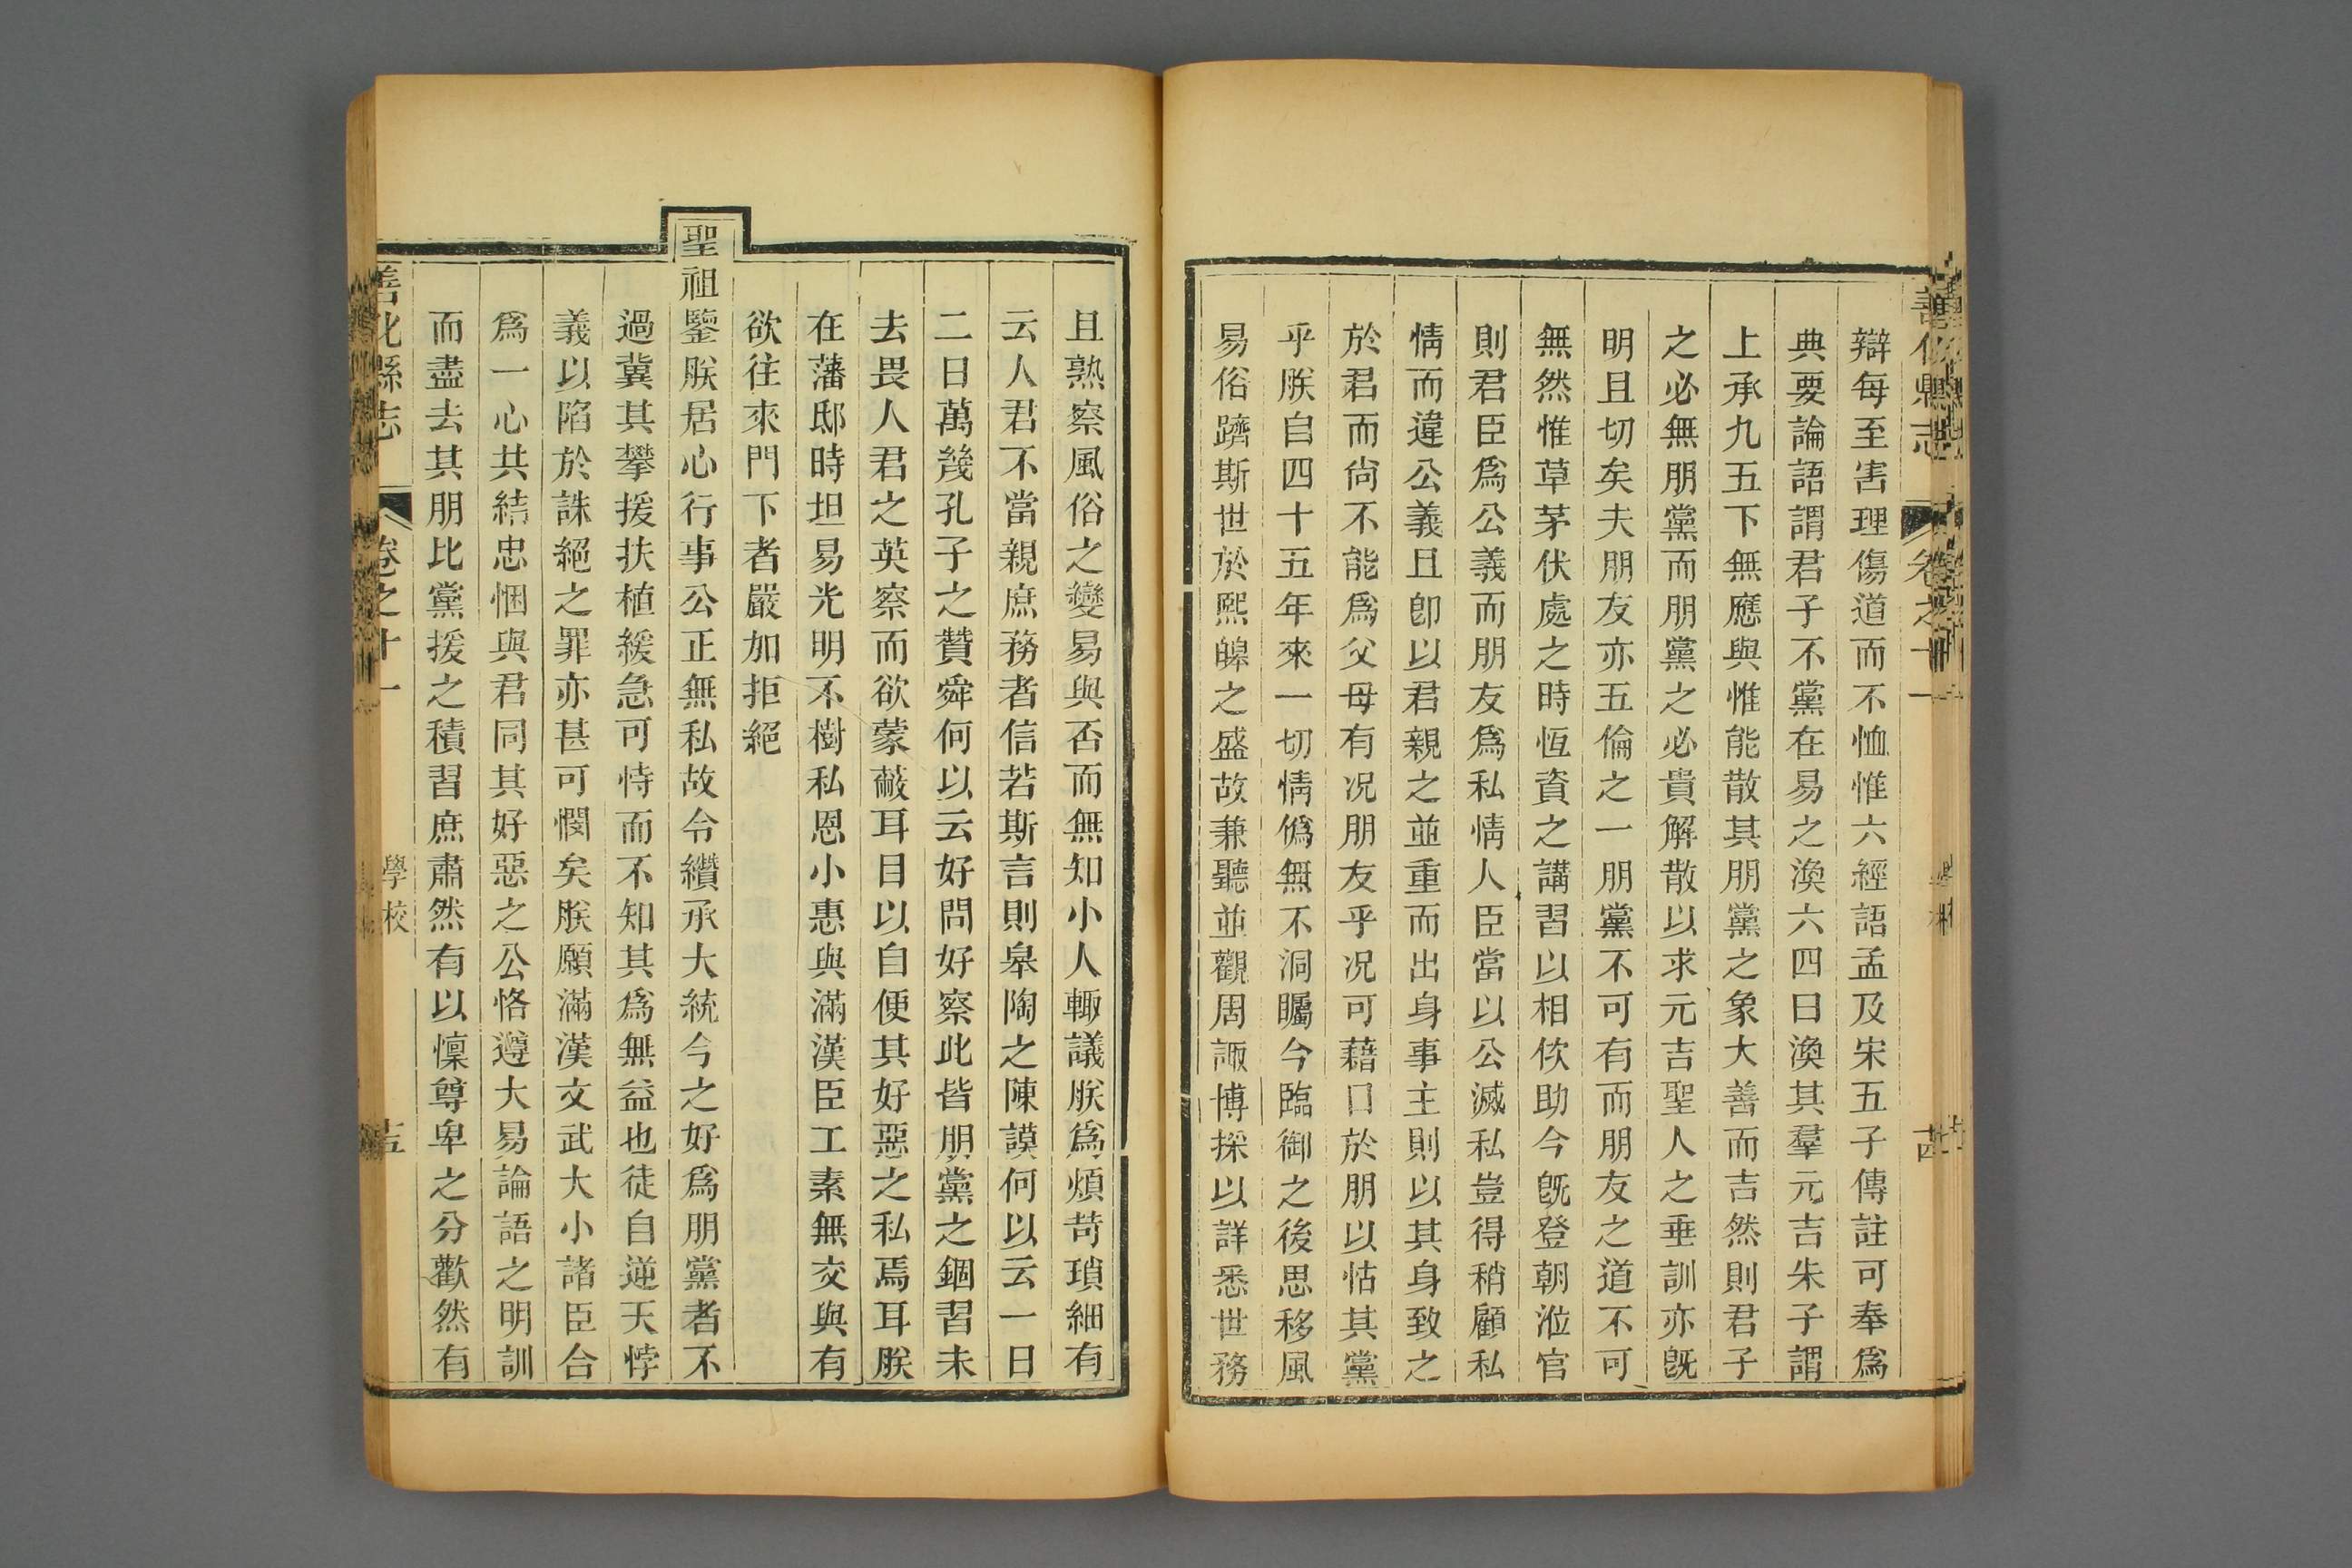 善化縣志
卷之十一
辯每至害理傷道而不恤惟六經語孟及宋五子傳註可奉爲
典要論語謂君子不黨在易之渙六四曰渙其羣元吉朱子謂
上承九五下無應與惟能散其朋黨之象大善而吉然則君子
之必無朋黨而朋黨之必貴解散以求元吉聖人之垂訓亦旣
明且切矣夫朋友亦五倫之一朋黨不可有而朋友之道不可
無然惟草茅伏處之時恆資之講習以相佽助今旣登朝涖官
則君臣爲公義而朋友爲私情人臣當以公滅私豈得稍顧私
情而違公義且卽以君親之並重而出身事主則以其身致之
於君而尙不能爲父母有况朋友乎况可藉口於朋以怙其黨
乎朕自四十五年來一切情僞無不洞矚今臨御之後思移風
易俗躋斯世於熙皞之盛故兼聽並觀周諏博採以詳悉世務
且熟察風俗之變易與否而無知小人輙議朕爲煩苛瑣細有
云人君不當親庶務者信若斯言則皋陶之陳謨何以云一日
二日萬幾孔子之贊舜何以云好問好察此皆朋黨之錮習未
去畏人君之英察而欲蒙蔽耳目以自便其好惡之私焉耳朕
在藩邸時坦易光明不樹私恩小惠與滿漢臣工素無交與有
欲往來門下者嚴加拒絕
聖祖鑒朕居心行事公正無私故令纘承大統今之好爲朋黨者不
過冀其攀援扶植緩急可恃而不知其爲無益也徒自逆天悖
義以陷於誅絕之罪亦甚可憫矣朕願滿漢文武大小諸臣合
爲一心共結忠悃與君同其好惡之公恪遵大易論語之明訓
而盡去其朋比黨援之積習庶肅然有以懍尊卑之分歡然有
善化縣志
卷之十一
學校
十五